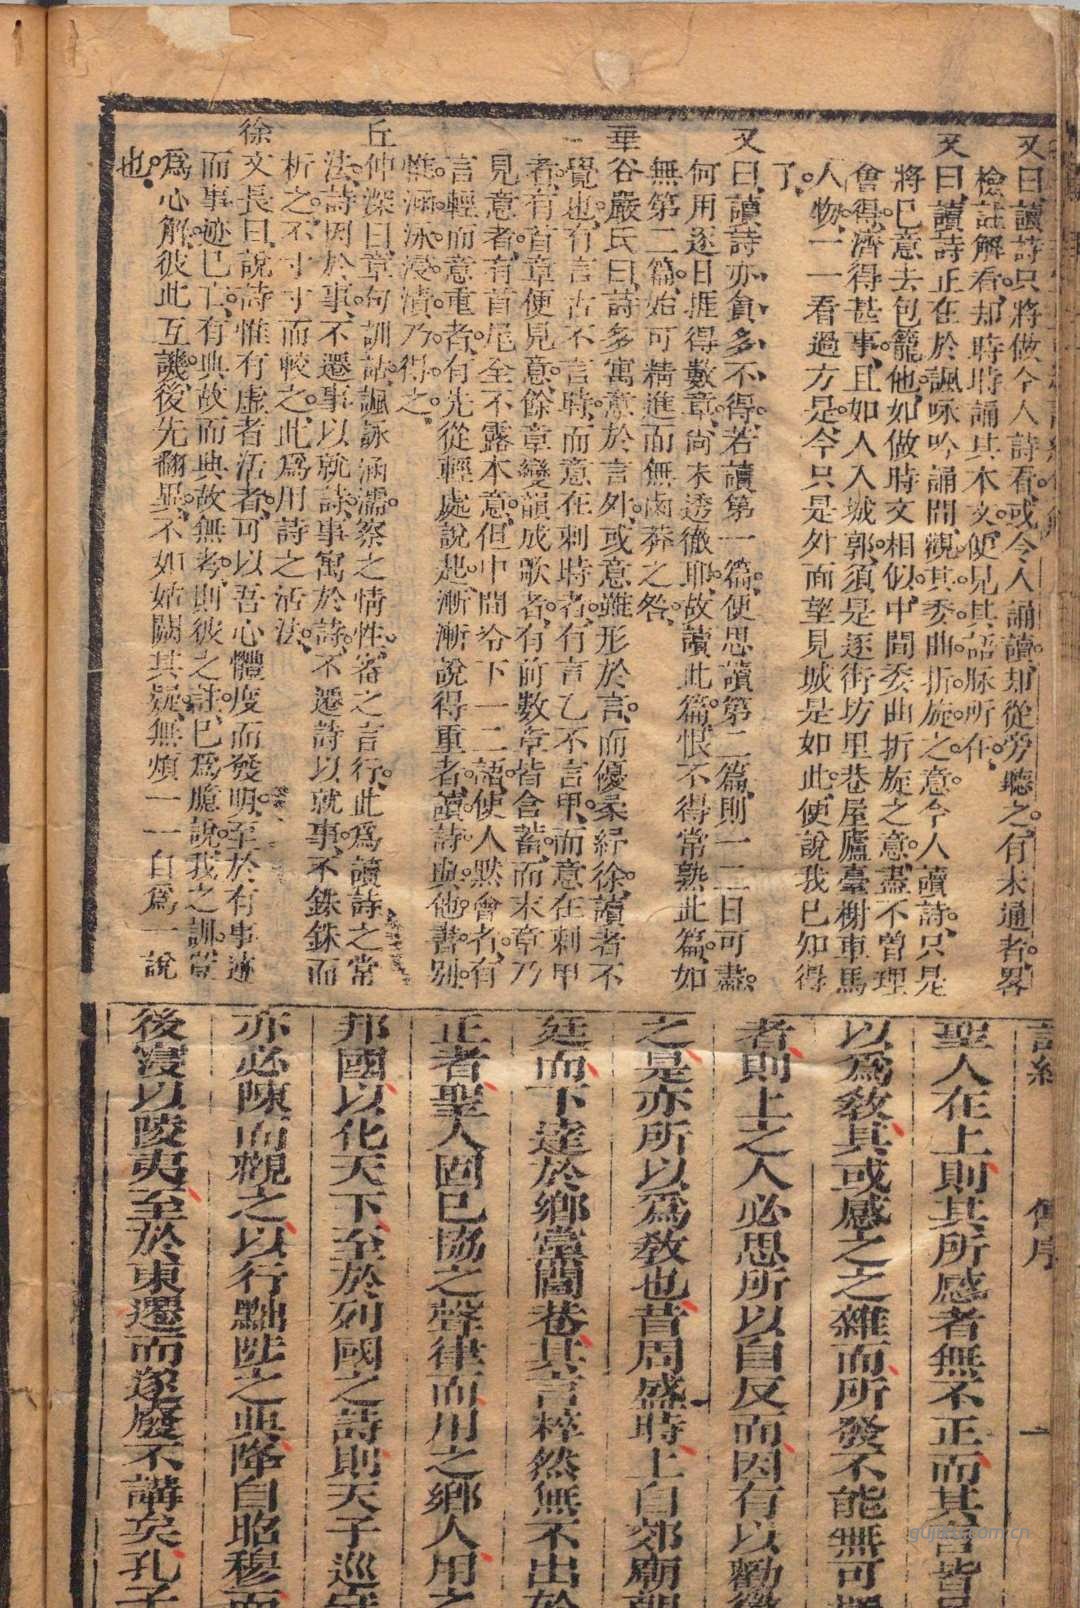 又曰讀詩只將做今人詩看或今人誦讀却從旁聽之有未通者畧
檢註解看却時時誦其本文便見其語脉所在
又曰讀詩正在於諷咏吟誦間觀其委曲折旋之意今人讀詩只是
將已意去包籠他如做時文相似中間委曲折旋之意盡不曾理
會得濟得甚事且如人入城郭須是逐街坊里巷屋廬臺榭車馬
人物一一看過方是今只是外面望見城是如此便說我已知得
了
又曰讀詩亦貪多不得若讀第一篇便思讀第二篇則一二日可盡
何用逐日捱得數章尚未透徹耶故讀此篇恨不得常熟此篇如
無第二篇始可精進而無鹵莽之咎
華谷嚴氏曰詩多寓意於言外或意雖形於言而優柔紆徐讀者不
覺也有言古不言時而意在刺時者有言乙不言甲而意在刺甲
者有首章便見意餘章變韻成歌者有前數章皆含蓄而末章乃
見意者有首尾全不露本意但中間冷下一二語使人默會者有
言輕而意重者有先從輕處說起漸漸說得重者讀詩與他書別
惟涵泳浸漬乃得之
丘仲深曰章句訓詁諷詠涵濡察之情性審之言行此爲讀詩之常
法詩因於事不遷事以就詩事寓於詩不遷詩以就事不銖銖而
析之不寸寸而較之此爲用詩之活法
徐文長曰說詩惟有虛者活者可以吾心體度而發明至於有事迹
而事迹已亡有典故而典故無考則彼之註已爲臆說我之訓豈
爲心解彼此互譏後先翻異不如姑闕其疑無煩一一自爲一說
也
詩經 傳序 一
聖人在上則其所感者無不正而其言皆
以爲敎其或感之之雜而所發不能無可
者則上之人必思所以自反而因有以勸
之是亦所以爲敎也昔周盛時上自郊廟朝
廷而下達於鄉黨閭巷其言粹然無不出於
正者聖人固已協之聲律而用之鄉人用之
邦國以化天下至於列國之詩則天子巡守
亦必陳而觀之以行黜陟之典降自昭穆而
後寖以陵夷至於東遷而遂廢不講矣孔子